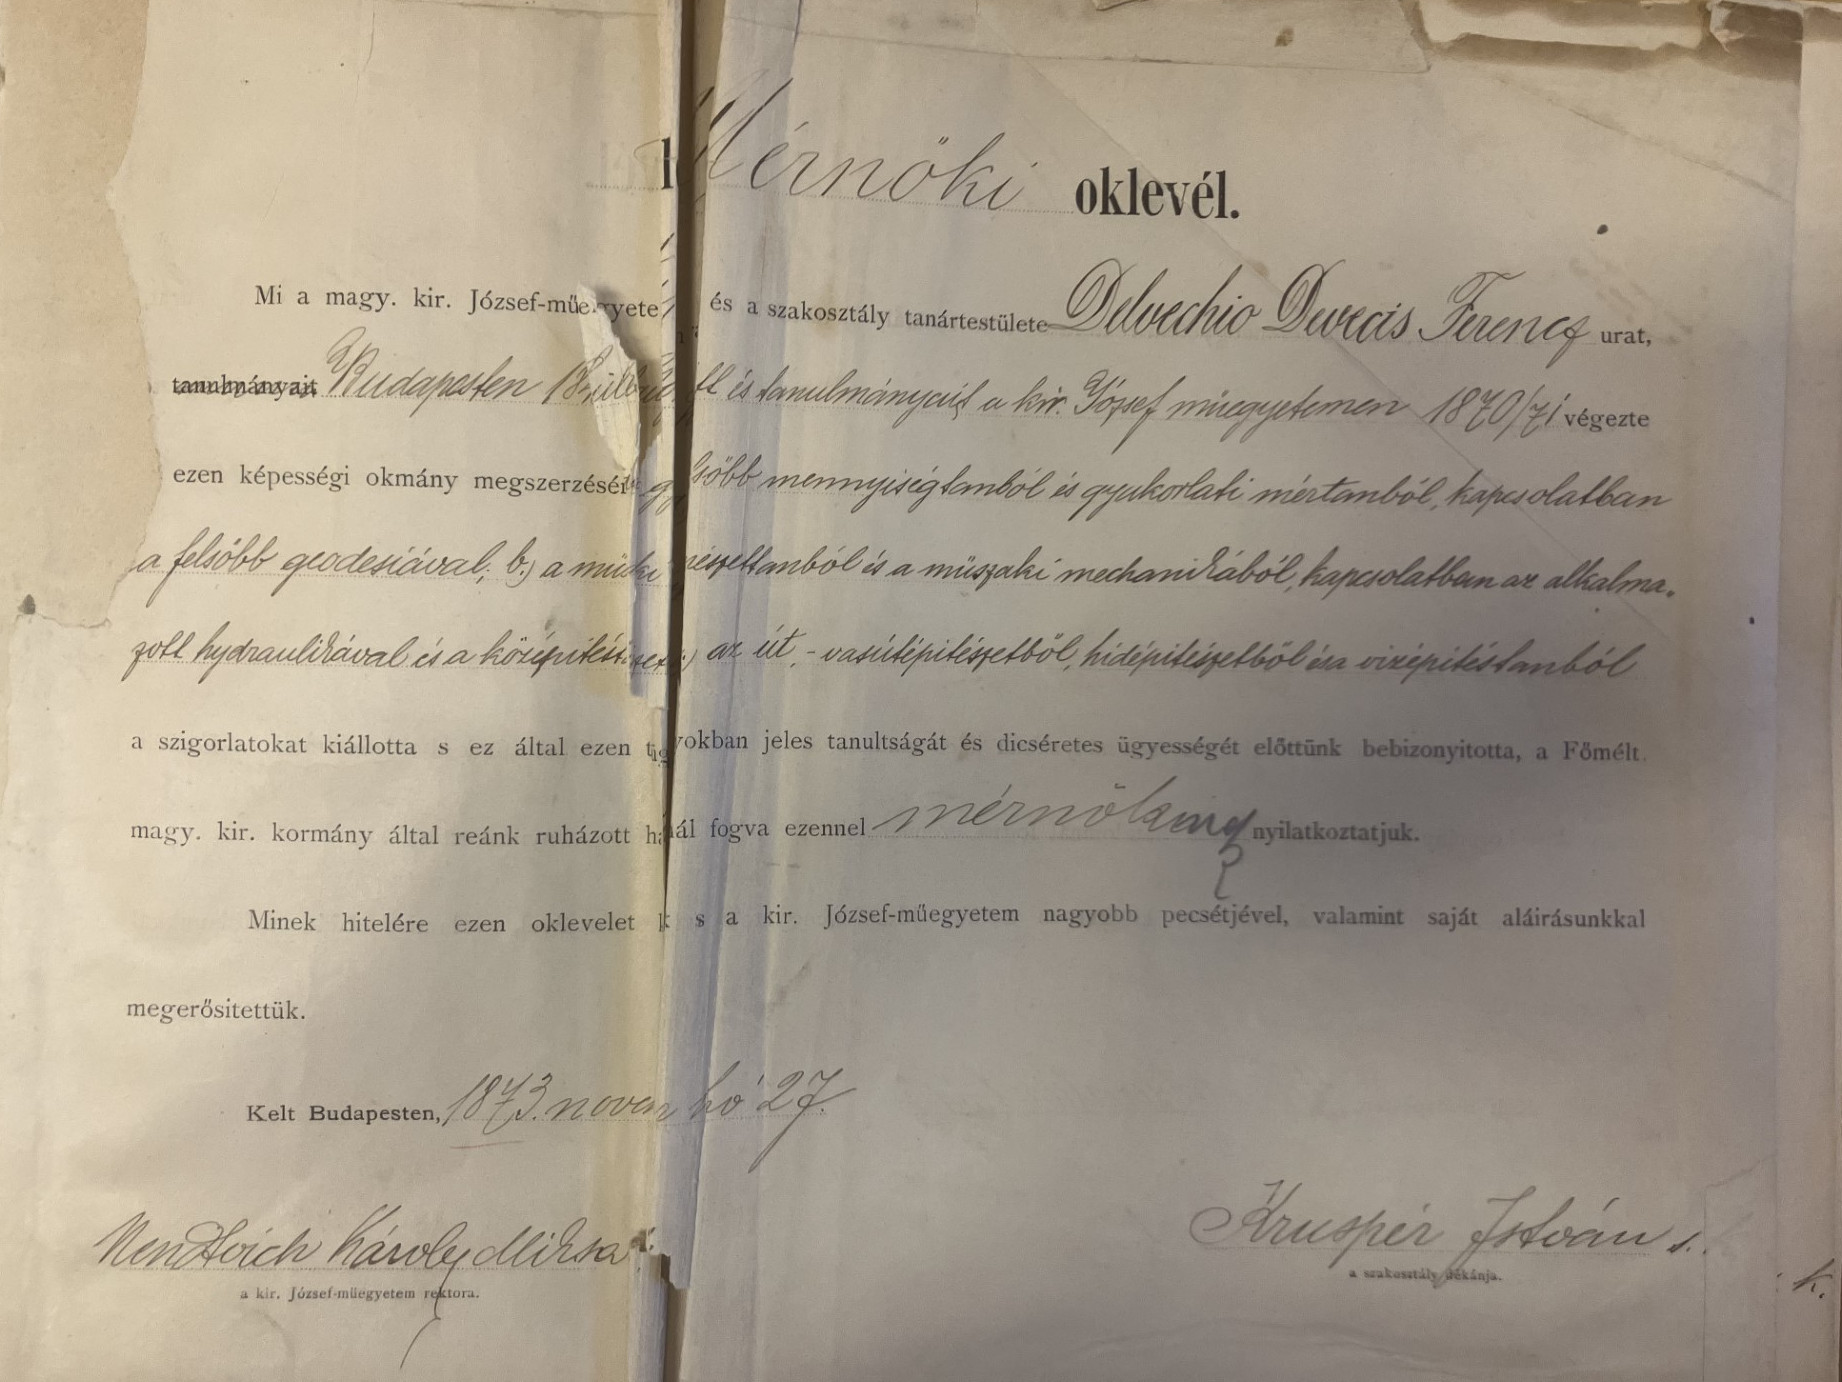 Mérnöki oklevél.
Mi a magy. kir. József-műegyete és a szakosztály tanártestülete Delvechio Devecis Ferencz urat,
tanulmányait Budapesten és tanulmányait a kir. József műegyetemen 1870/71 végezte
ezen képességi okmány megszerzésé mennyiségtanból és gyakorlati mértanból, kapcsolatban
a felsőbb geodesiával, b.) a műszaki mechanikából, kapcsolatban az alkalma-
zott hydraulikával és a középítés az út, - vasútépitészetből, hidépitészetből és a vizépitéstanból
a szigorlatokat kiállotta s ez által ezen yokban jeles tanultságát és dicséretes ügyességét előttünk bebizonyitotta, a Főmélt.
magy. kir. kormány által reánk ruházott nál fogva ezennel mérnöknek nyilatkoztatjuk.
Minek hitelére ezen oklevelet k s a kir. József-műegyetem nagyobb pecsétjével, valamint saját aláirásunkkal
megerősitettük.
Kelt Budapesten, 1873. novem hó 27.
Nendtvich Károly Miksa
a kir. József-műegyetem rektora.
Kruspér István s. k.
a szakosztály dékánja.